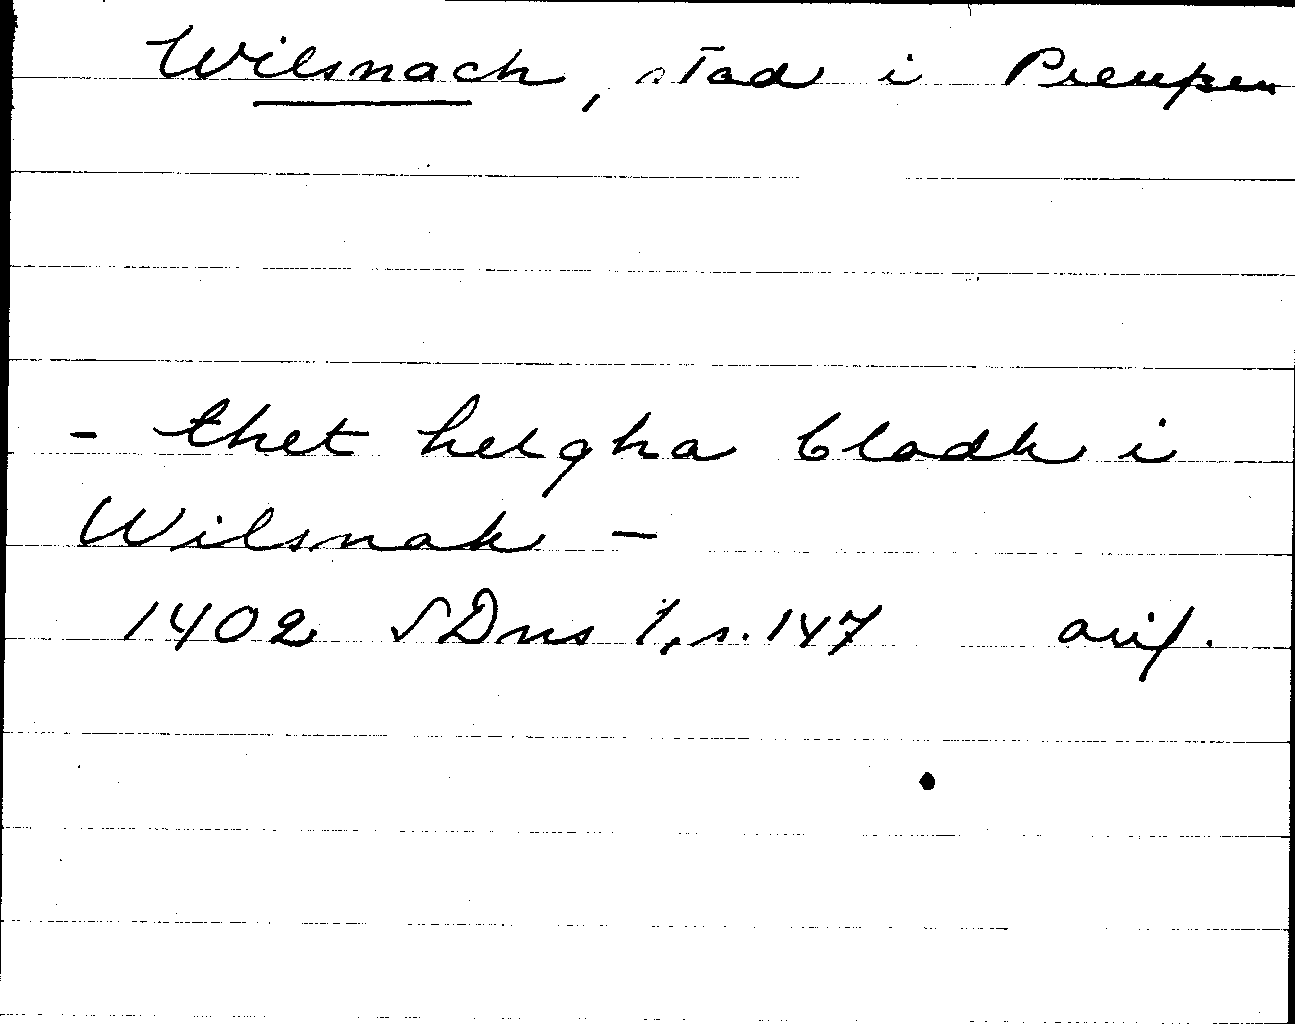 Wilsnach, stad i Preuβen
- thet helgha blodh i
Wilsnak -
1402 SDns 1, s. 147 avif.